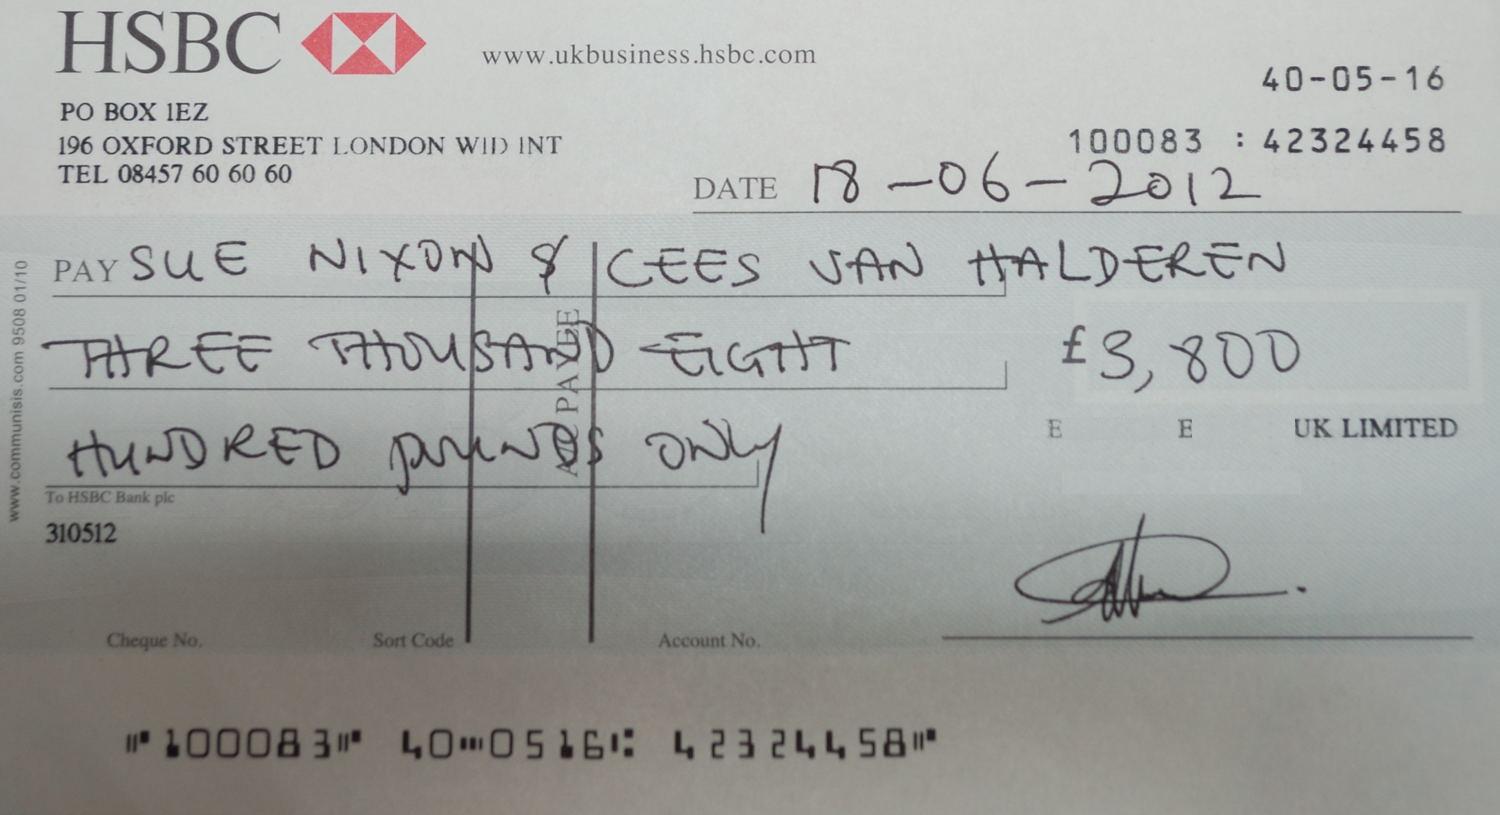 HSBC www.ukbusiness.hsbc.com
40-05-16
PO BOX 1EZ
196 OXFORD STREET LONDON W1D 1NT
TEL 08457 60 60 60
100083 : 42324458
DATE 18-06-2012
PAY SUE NIXON & CEES VAN HALDEREN
THREE THOUSAND EIGHT £3,800
HUNDRED POUNDS ONLY
A/C PAYEE
E E UK LIMITED
To HSBC Bank plc
310512
Cheque No. Sort Code Account No.
⑈100083⑈ 40⑉0516⑆ 42324458⑈
www.communisis.com 9508 01/10